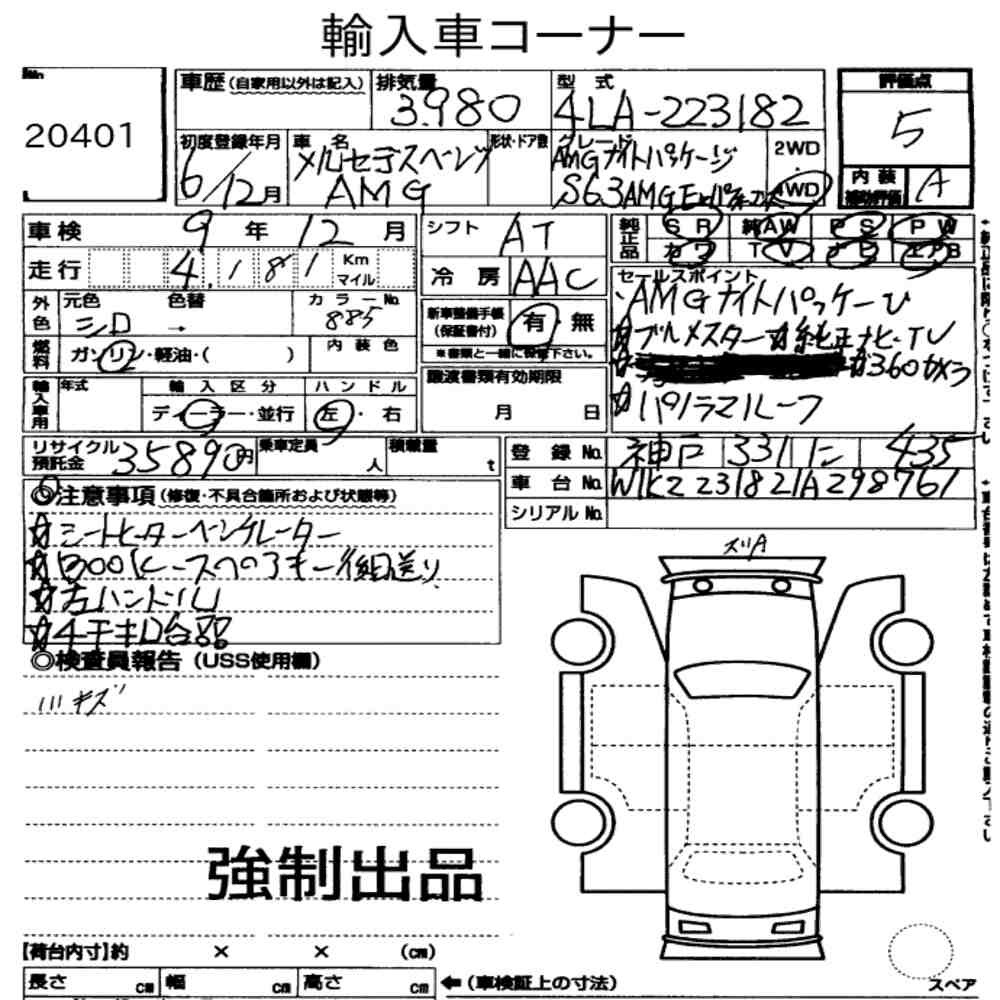 輸入車コーナー
No.
20401
車歴(自家用以外は記入) 排気量 3.980 型式 4LA-223182
評価点 5
初度登録年月 6/12月 車名 メルセデスベンツ AMG 形状・ドア数 グレード AMGナイトパッケージ S63AMG 2WD 4WD
内装補助評価 A
車検 9年12月 シフト AT
純正品 SR 純AW PS PW
カワ TV ナビ エアB
走行 4,181 Km マイル 冷房 AAC
セールスポイント
AMGナイトパッケージ
外色 元色 シロ 色替 → カラーNo. 885
新車整備手帳(保証書付) 有・無
※書類と一緒に保管下さい。
☆ブルメスター ☆純正ナビ・TV
燃料 ガソリン・軽油・( ) 内装色
☆360カメラ
輸入車用 年式 輸入区分 ディーラー・並行 ハンドル 左・右
譲渡書類有効期限 月 日
☆パノラマルーフ
リサイクル預託金 35890円 乗車定員 人 積載量 t
登録No. 神戸 331 に 435
車台No. W1K2231821A298761
シリアルNo.
◎注意事項(修復・不具合箇所および状態等)
☆シートヒーターベンチレーター
☆左ハンドル
☆4千キロ台
◎検査員報告(USS使用欄)
キズ
ズリA
強制出品
【荷台内寸】約 × × (cm)
長さ cm 幅 cm 高さ cm ←(車検証上の寸法)
スペア